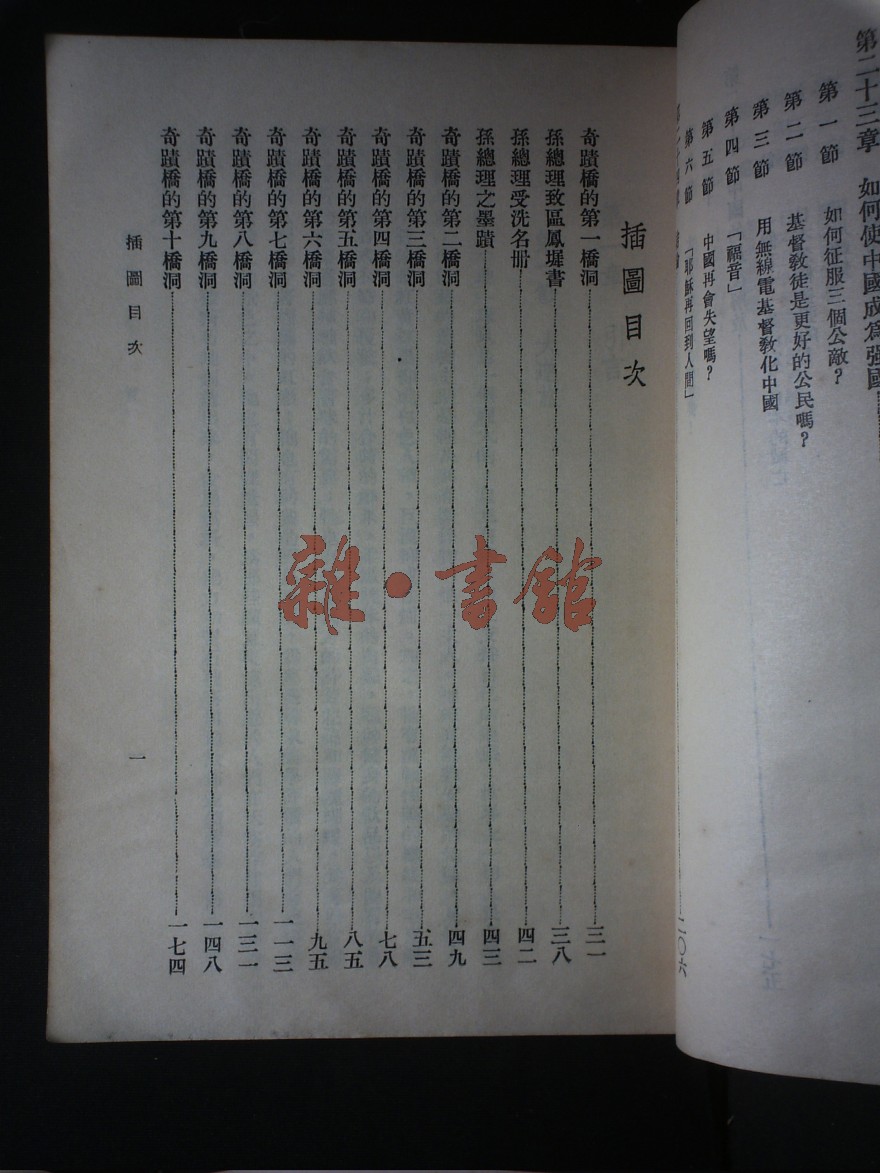 第二十三章　如何使中國成爲强國
第一節　如何征服三個公敵？
第二節　基督敎徒是更好的公民嗎？
第三節　用無線電基督敎化中國
第四節　「福音」
第五節　中國再會失望嗎？
第六節　「耶穌再回到人間」
二〇六
插圖目次
奇蹟橋的第一橋洞……三一
孫總理致區鳳墀書……三八
孫總理受洗名册……四二
孫總理之墨蹟……四三
奇蹟橋的第二橋洞……四九
奇蹟橋的第三橋洞……五三
奇蹟橋的第四橋洞……七八
奇蹟橋的第五橋洞……八五
奇蹟橋的第六橋洞……九五
奇蹟橋的第七橋洞……一一三
奇蹟橋的第八橋洞……一三一
奇蹟橋的第九橋洞……一四八
奇蹟橋的第十橋洞……一七四
插圖目次　一
雜·書館